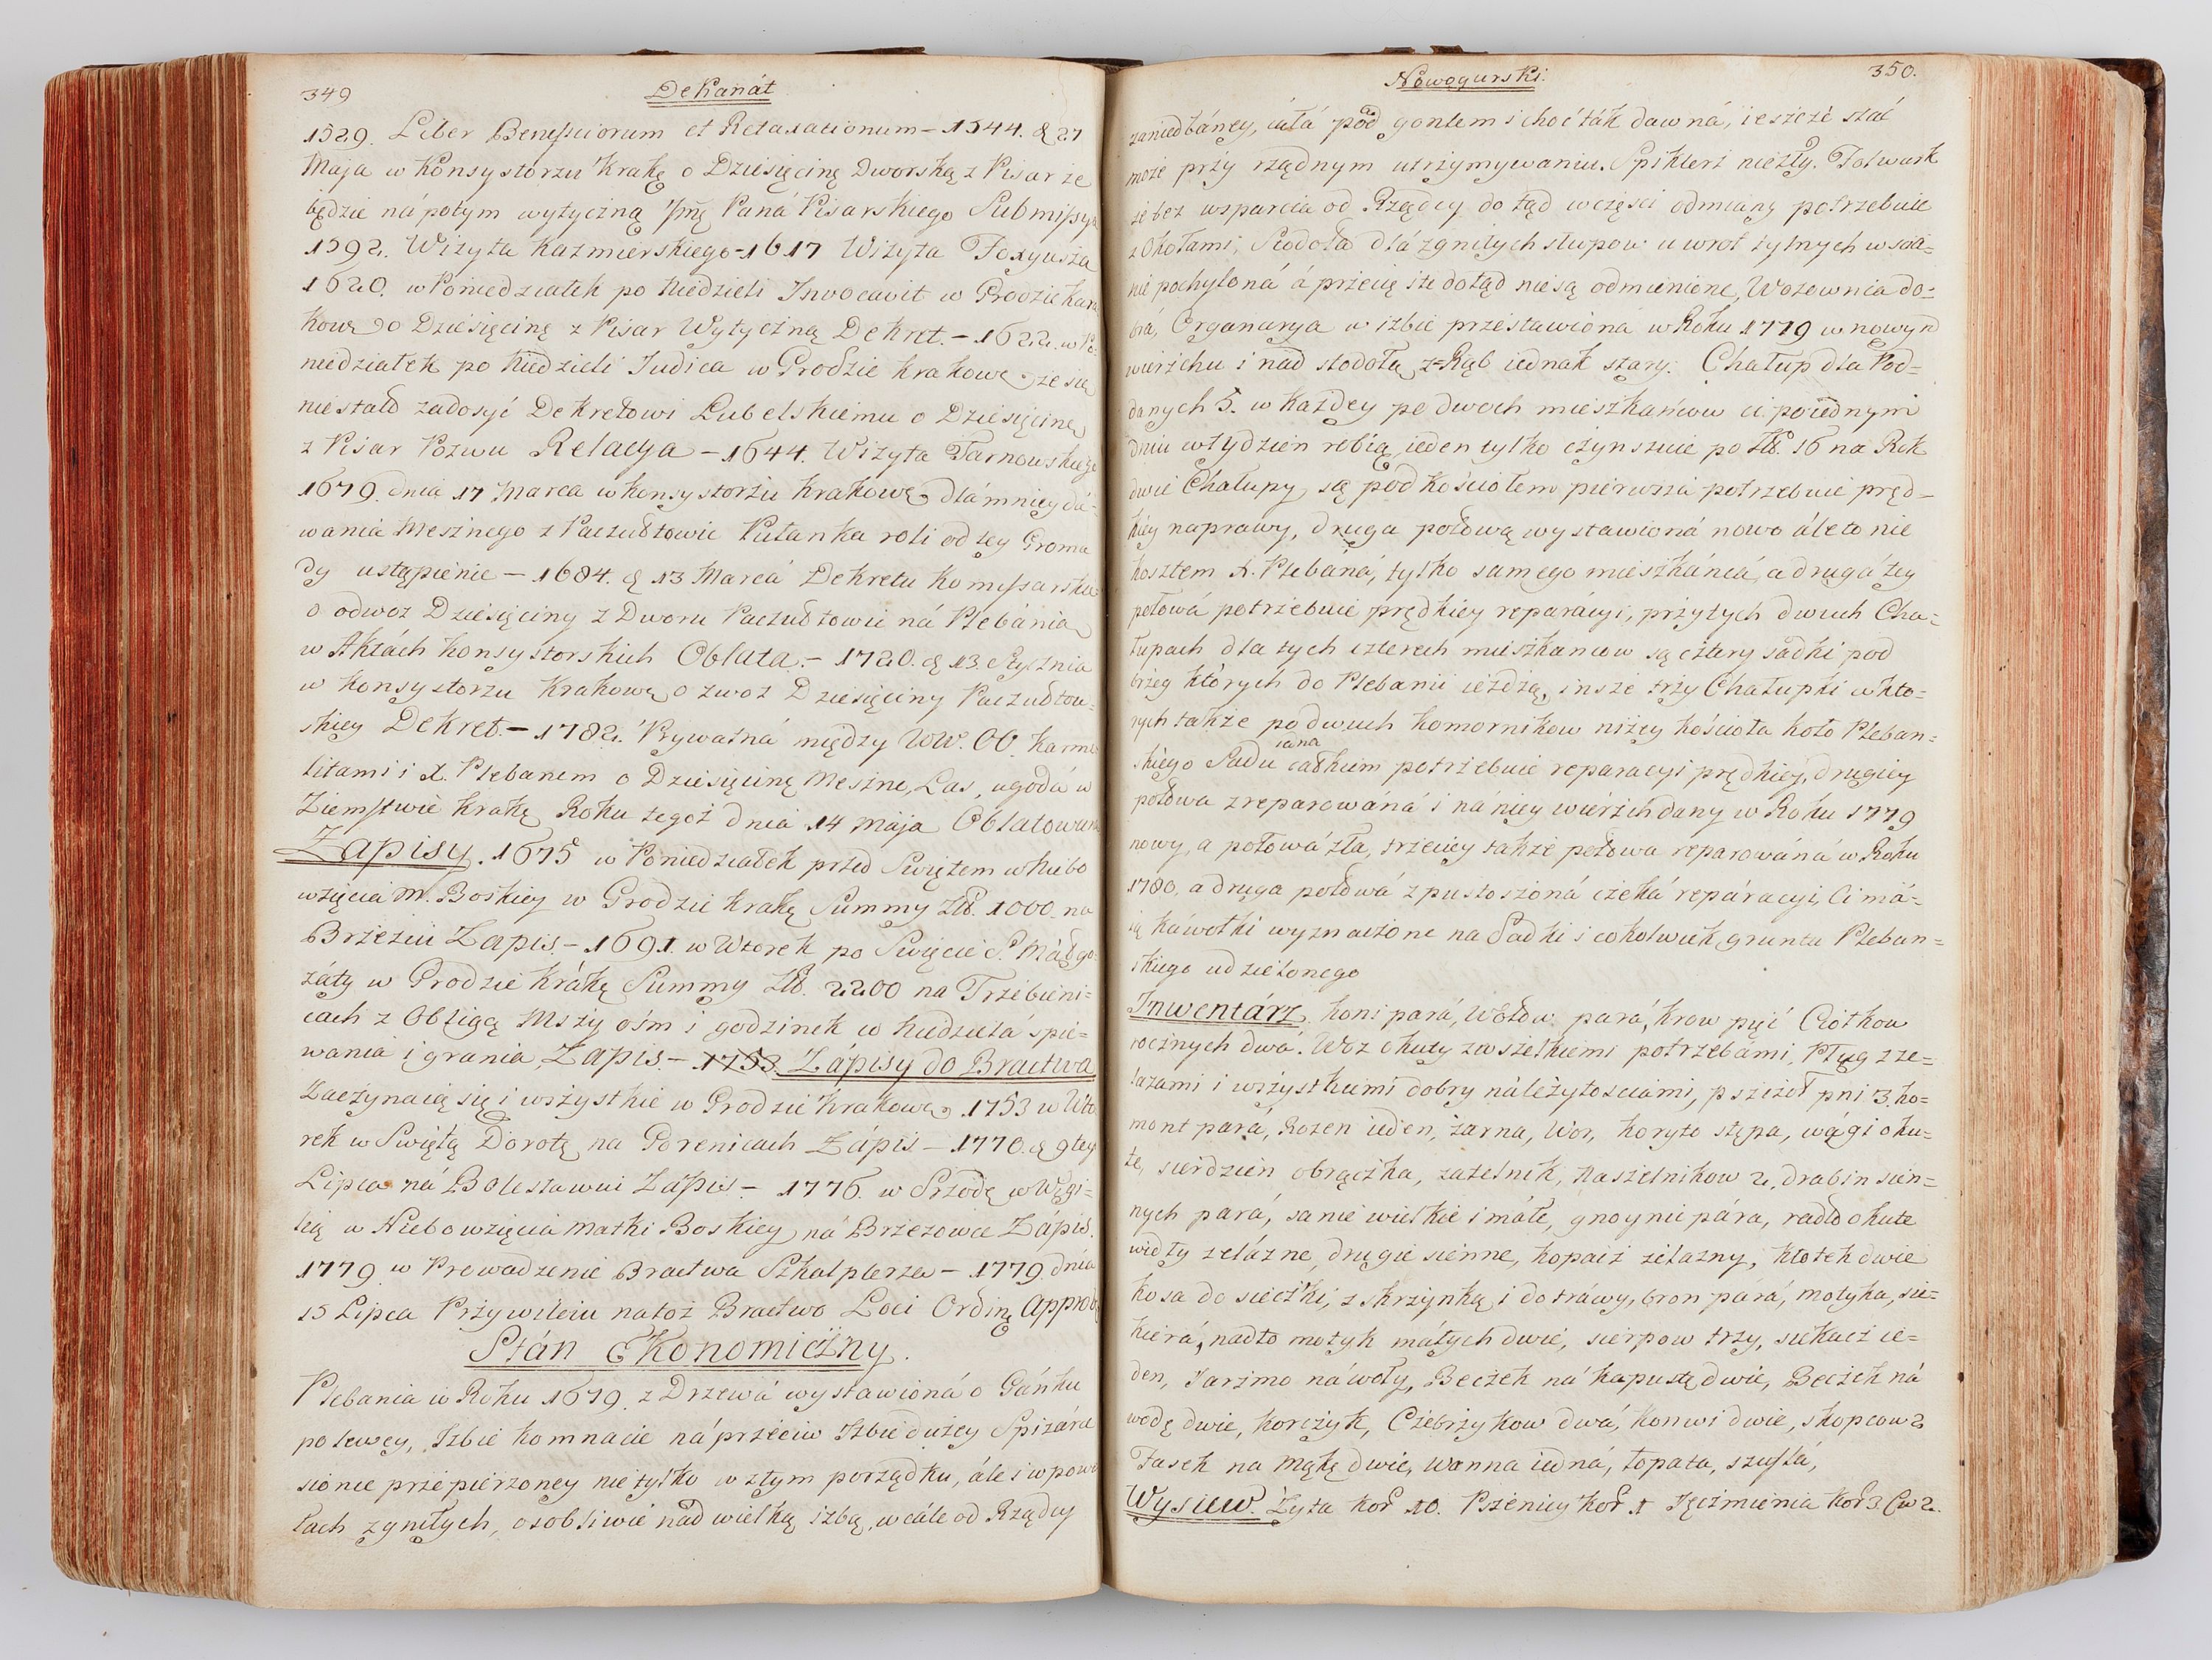 349
Dekanát
1529. Liber Beneficiorum et Retaxationum – 1544. d 27
Maja w Konsystorzu Krakę o Dziesięcinę Dworską z Pisar że
będzie ná potym wytyczną Jmę Paná Pisarskiego Submissya
1592. Wizyta Kazmierskiego – 1617 Wizyta Foxyusza
1620. w Poniedziałek po Niedzieli Invocavit w Grodzie Kra
kowę o Dziesięcinę z Pisar Wytyczną Dekret. – 1622. w Po-
niedziałek po Niedzieli Judica w Grodzie Krakowę że się
nie stało zadosyć Dekretowi Lubelskiemu o Dziesięcinę
z Pisar Pozwu Relacya – 1644. Wizyta Tarnowskiego
1679. dnia 17 Marca w Konsystorzu Krakowę dlá mniey dá-
wania Mesznego z Paczułtowic Pułanka roli od tey Groma
dy ustąpienie – 1684. d 13 Marcá Dekretu Komissarsk
o odwoz Dziesięciny z Dworu Paczułtowic ná Plebánią
w Aktách Konsystorskich Oblata. – 1720. d 13. Stycznia
w Konsystorzu Krakowę o zwoz Dziesięciny Paczułtow-
skiey Dekret. – 1782. Prywatná między WW. OO. Karme
litami i X. Plebanem o Dziesięcinę Meszne, Las, ugodá w
Ziemstwie Krakę Roku tegoż dnia 14 Mája Oblatowana
Zapisy. 1675 w Poniedziałek przed Swiętem w Niebo
wzięcia M. Boskiey w Grodzie Krakę Summy Zł. 1000. na
Brzeziu Zapis. – 1691. w Wtorek po Swięcie S. Małgo-
záty w Grodzie Krákę Summy Zł. 2200 na Trzebieni=
cach z Obligą Mszy ośm i godzinek w Niedzielá spie-
wania i grania, Zapis. – 1753. Zápisy do Bractwa
Zaczynaią się i wszystkie w Grodzie Krakowę 1753 w Wto
rek w Swiętą Dorotę na Gorenicach Zápis – 1770. d 9 tey
Lipca ná Bolesławiu Zápis – 1776. w Srzodę w Wigi=
lią w Niebowzięcia Matki Boskiey ná Brzezowce Zápis.
1779. w Prowadzenie Bractwa Szkaplerza – 1779. dniá
15 Lipca Przywileiu na toż Bractwo Loci Ordinę Approb
Stán Ekonomiczny.
Plebania w Roku 1679. z Drzewá wystawioná o Gánku
po lewey, Izbie komnacie ná przeciw Izbie dużey Spizárce
sionce przepierzoney nie tylko w złym porządku, ále i w powa
łach zgniłych, osobliwie nád wielką izbą, w cále od Rządcy
Nowogurski.
350.
zaniedbáney, cáłá pod gontem i choć ták dawná, ieszcze stać
może przy rządnym utrzymywaniu. Spiklerz niezły. Folwark
że bez wsparcia od Rządcy do tąd w części odmiany potrzebuie
z Okołami, Stodoła dlá zgniłych słupow u wrot tylnych w scia=
nie pochyloná á przecię ite dotąd nie są odmienione, Wozownia do=
brá, Organarya w izbie przestawiona w Roku 1779 w nowym
wierzchu i nad stodołą, zrąb iednak stary. Chałup dla Pod=
danych 5. w każdey po dwoch mieszkańcow ci po iednym
dniu w tydzien robią, ieden tylko czynszuie po Zł. 16 na Rok
dwie Chałupy są pod kościołem pierwsza potrzebuie pręd=
kiey naprawy, druga połową wystawioná nowo ále to nie
kosztem X. Plebáná, tylko samego mieszkáńca, a drugá tey
połowá potrzebuie prędkiey reparácyi, przy tych dwuch Cha=
łupach dla tych czterech mieszkancow są cztery sadki pod
brzeg których do Plebanii ieżdżą, insze trzy Chałupki w kto=
rych także po dwuch komornikow niżey kościoła koło Pleban=
skiego Sadu iedna całkiem potrzebuie reparacyi prędkiey, drugiey
połowa zreparowáná i ná niey wierzch dany w Roku 1779
nowy, a połowá zła, trzeciey także połowa reparowáná w Roku
1780, a druga połowá zpustoszoná czeká repáracyi, Ci má=
ią káwołki wyznaczone na Sadki i cokolwiek gruntu Pleban=
skiego udzielonego
Inwentárz. Koni pará, Wołow pará, Krow pięć Ciołkow
rocznych dwá. Woz okuty zwszelkiemi potrzebámi, Pług z że=
lazami i wszystkiemi dobry należytosciami, pszczoł pni 3. ho=
mont pará, Rozen ieden, żarna, Wor, koryto stępa, wági oku=
te, sierdzień obrączka, zatelnik, Naszelnikow 2, drabin sien=
nych pará, sanie wielkie i máłe, gnoynic pára, radło okute
widły żelázne, drugie sienne, kopacz żelazny, kłotek dwie
kosa do sieczki, z skrzynką i do tráwy, bron pará, motyka, sie=
kierá, nadto motyk máłych dwie, sierpow trzy, siekacz ie=
den, Jarzmo ná woły, Beczek ná kapustę dwie, Beczek ná
wodę dwie, korczyk, Czebrzykow dwá, Konwi dwie, skopcow 2
Fasek na Mąkę dwie, wanna iedná, łopata, szuflá,
Wysiew. Żyta kor 10. Pszenicy kor 1 Jęczmienia kor 3 Cw 2.